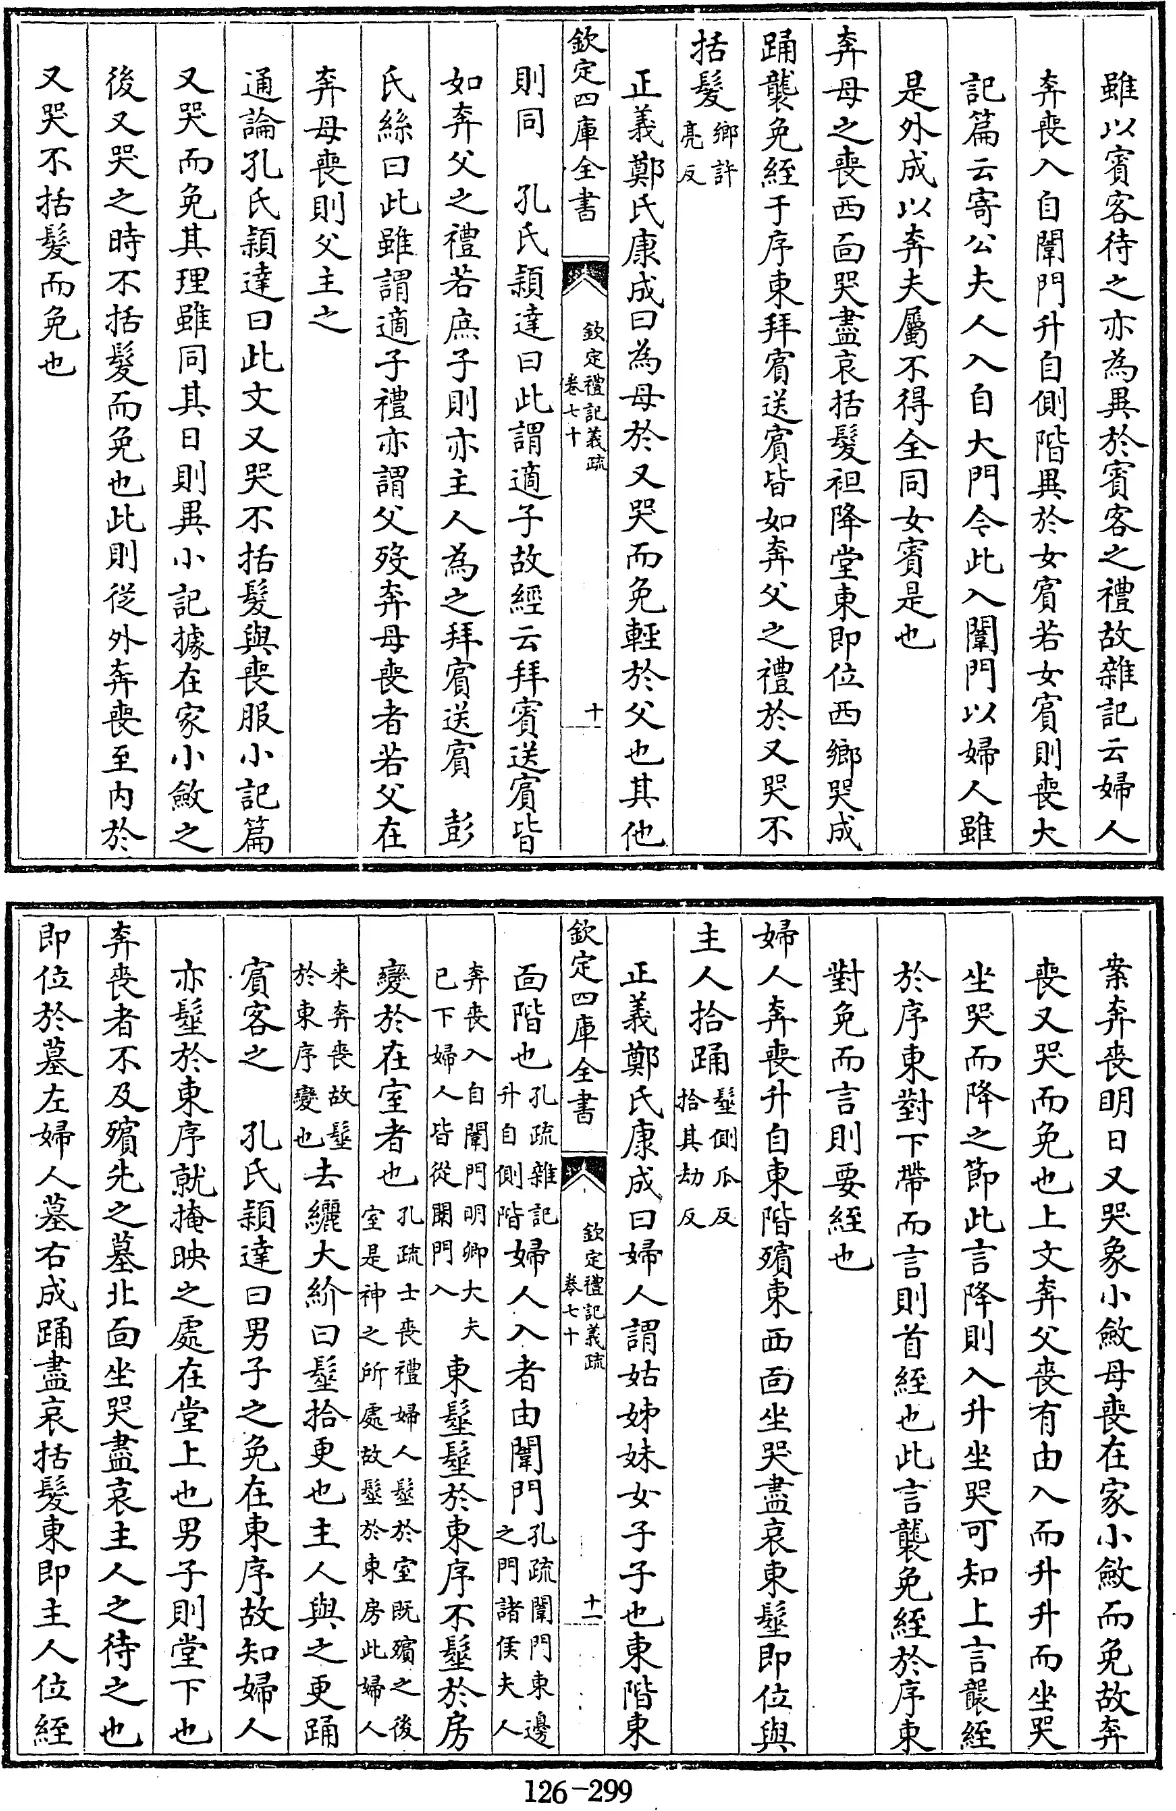 雖以賓客待之亦為異於賓客之禮故雜記云婦人
奔喪入自闈門升自側階異於女賓若女賓則喪大
記篇云寄公夫人入自大門今此入闈門以婦人雖
是外成以奔夫屬不得全同女賓是也
奔母之喪西面哭盡哀括髮袒降堂東即位西鄉哭成
踊襲免絰于序東拜賓送賓皆如奔父之禮於又哭不
括髮鄉許亮反
正義鄭氏康成曰為母於又哭而免輕於父也其他
欽定四庫全書 欽定禮記義疏 卷七十 十
則同 孔氏穎達曰此謂適子故經云拜賓送賓皆
如奔父之禮若庶子則亦主人為之拜賓送賓 彭
氏絲曰此雖謂適子禮亦謂父歿奔母喪者若父在
奔母喪則父主之
通論孔氏穎達曰此文又哭不括髮與喪服小記篇
又哭而免其理雖同其日則異小記據在家小斂之
後又哭之時不括髮而免也此則從外奔喪至內於
又哭不括髮而免也
案奔喪明日又哭象小斂母喪在家小斂而免故奔
喪又哭而免也上文奔父喪有由入而升升而坐哭
坐哭而降之節此言降則入升坐哭可知上言襲絰
於序東對下帶而言則首絰也此言襲免絰於序東
對免而言則要絰也
婦人奔喪升自東階殯東西面坐哭盡哀東髽即位與
主人拾踊髽側瓜反拾其劫反
正義鄭氏康成曰婦人謂姑姊妹女子子也東階東
欽定四庫全書 欽定禮記義疏 卷七十 十一
面階也孔疏雜記升自側階婦人入者由闈門孔疏闈門東邊之門諸侯夫人
奔喪入自闈門明卿大夫已下婦人皆從闈門入 東髽髽於東序不髽於房
變於在室者也孔疏士喪禮婦人髽於室既殯之後室是神之所處故髽於東房此婦人
来奔喪故髽於東序變也去纚大紒曰髽拾更也主人與之更踊
賓客之 孔氏穎達曰男子之免在東序故知婦人
亦髽於東序就掩映之處在堂上也男子則堂下也
奔喪者不及殯先之墓北面坐哭盡哀主人之待之也
即位於墓左婦人墓右成踊盡哀括髮東即主人位絰
126-299